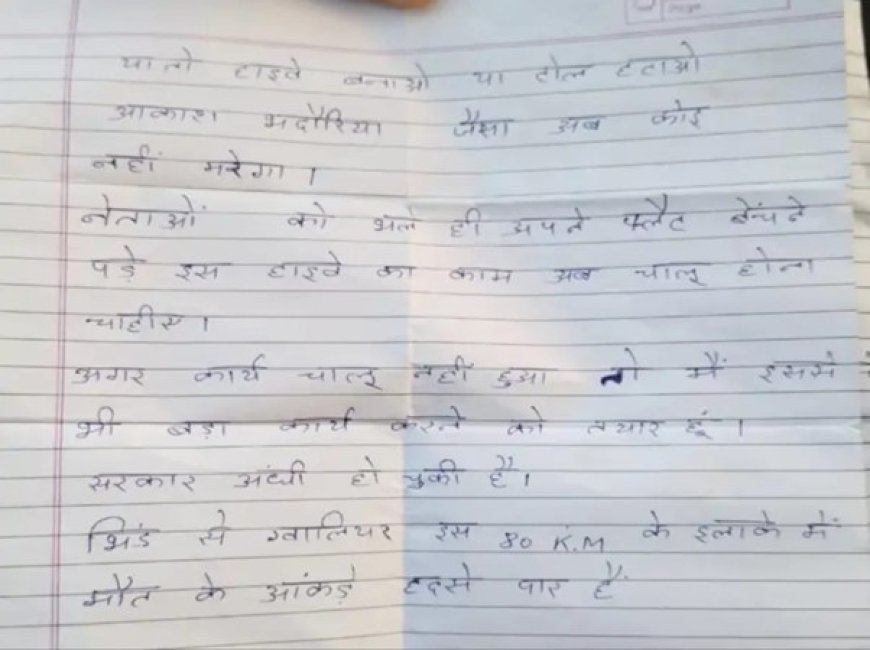 या तो हाइवे बनाओ या टोल हटाओ
आकाश भदौरिया जैसा अब कोइ
नहीं मरेगा ।
नेताओं को भले ही अपने फ्लैट बेंचने
पड़े इस हाइवे का काम अब चालू होना
चाहीए ।
अगर कार्य चालू नहीं हुआ तो मैं इससे
भी बड़ा कार्य करने को तयार हूं ।
सरकार अंधी हो चुकी है ।
भिंड से ग्वालियर इस 80 K.M के इलाके में
मौत के आंकड़े हदसे पार हैं